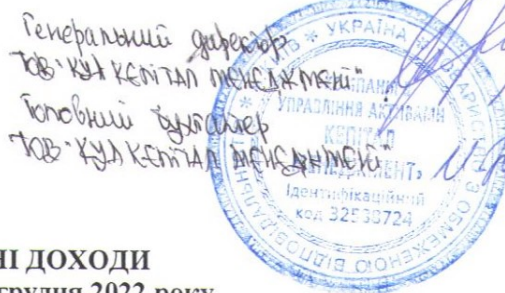 Генеральний директор
ТОВ "КУА КЕПІТАЛ МЕНЕДЖМЕНТ"
Головний бухгалтер
ТОВ "КУА КЕПІТАЛ МЕНЕДЖМЕНТ"
УКРАЇНА
УПРАВЛІННЯ АКТИВАМИ
КЕПІТАЛ
Ідентифікаційний
код
З ОБМЕЖЕНОЮ ВІДПОВІДАЛЬНІСТЮ
НІ ДОХОДИ
грудня 2022 року